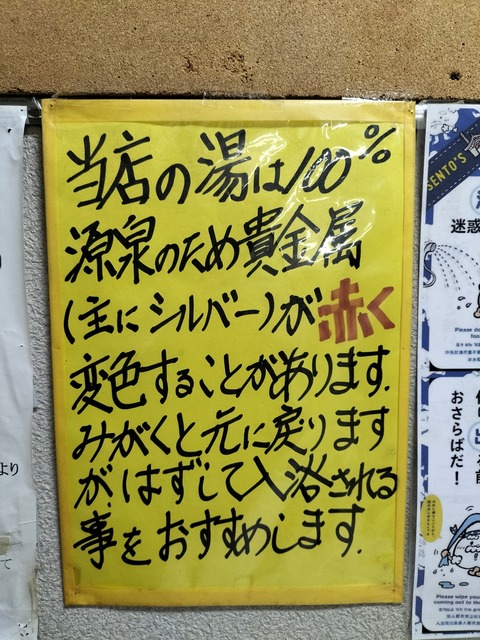 当店の湯は100%
源泉のため貴金属
(主にシルバー)が赤く
変色することがあります.
みがくと元に戻ります
が、はずして入浴される
事をおすすめします.
より
て
SENTO'S
迷惑
Please do
おさらばだ!
Please wipe your
coming out to the